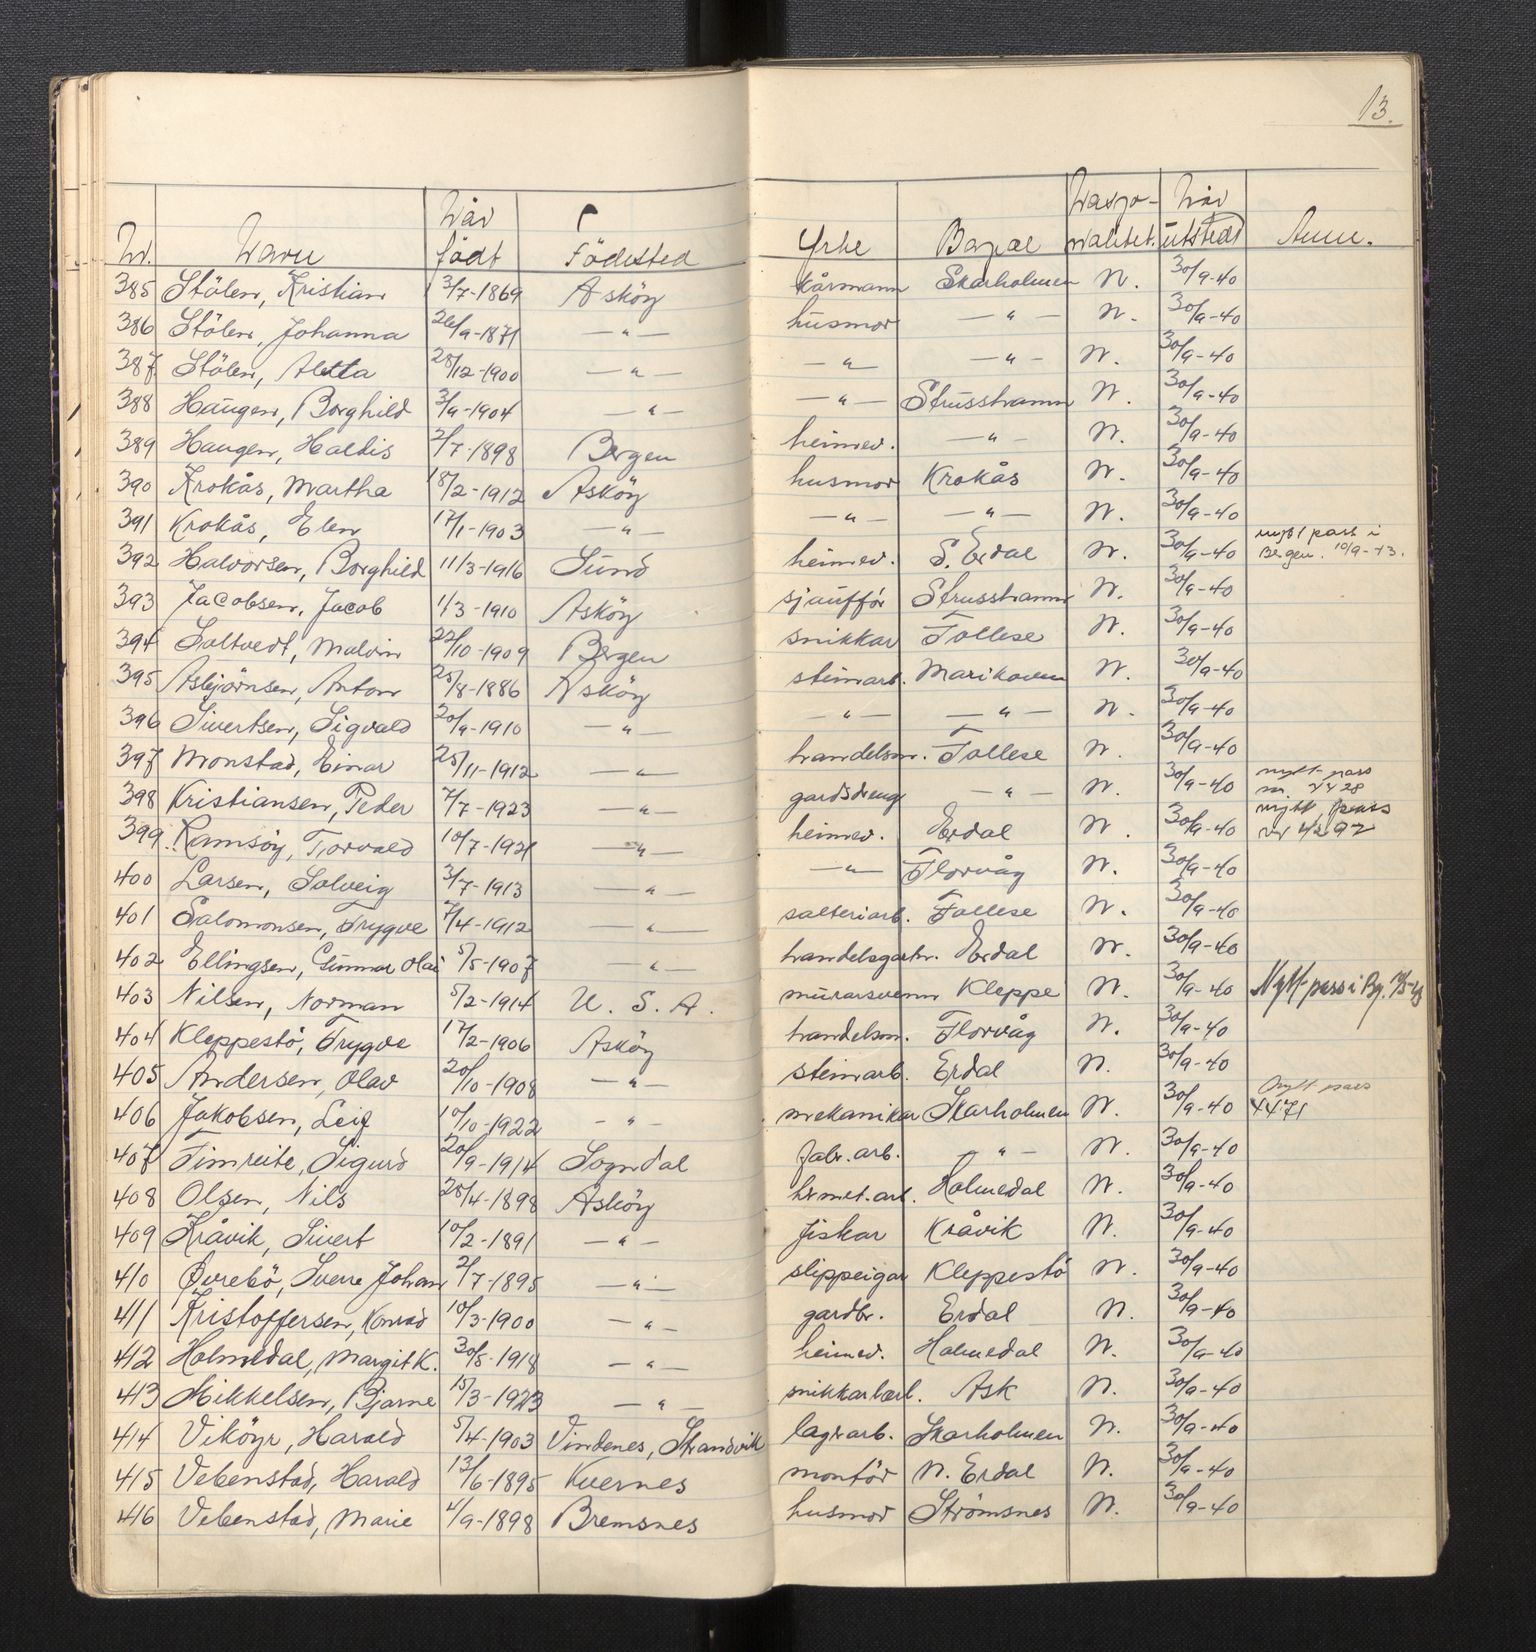 13.
Nr. Navn Når födt Födested Yrke Bopæl Nasjonalitet. Når utstedt Anm.
385 Stölen, Kristian 3/7-1869 Asköy kårmann Skarholmen N. 30/9-40
386 Stölen, Johanna 26/9-1871 —"— husmor —"— N. 30/9-40
387 Stölen, Aletta 28/12-1900 —"— —"— —"— N. 30/9-40
388 Haugen, Borghild 3/9-1904 —"— —"— Strusshamn N. 30/9-40
389 Haugen, Haldis 2/7-1898 Bergen heimev. —"— N. 30/9-40
390 Krokås, Martha 18/2-1912 Asköy husmor Krokås N. 30/9-40
391 Krokås, Elen 17/1-1903 —"— —"— —"— N. 30/9-40
392 Halvorsen, Borghild 11/3-1916 Sund heimev. S. Erdal N. 30/9-40 nytt pass i Bergen. 10/9-43.
393 Jacobsen, Jacob 1/3-1910 Asköy sjauffór Strusshamn N. 30/9-40
394 Saltvedt, Malvin 22/10-1909 Bergen snikkar Follese N. 30/9-40
395 Asbjörnsen, Anton 25/8-1886 Asköy steinarb. Marikoven N. 30/9-40
396 Sivertsen, Sigvald 20/9-1910 —"— —"— —"— N. 30/9-40
397 Monstad, Einar 25/11-1912 —"— handelsm. Follese N. 30/9-40
398 Kristiansen, Peder 7/7-1923 —"— gardsdreng —"— N. 30/9-40 nytt pass nr. 4428
399. Ramsöy, Torvald 10/7-1921 —"— heimev. Erdal N. 30/9-40 nytt pass nr 4292
400 Larsen, Solveig 3/7-1913 —"— —"— Florvåg N. 30/9-40
401 Salomonsen, Trygve 7/4-1912 —"— salteriarb. Follese N. 30/9-40
402 Ellingsen, Gunnar Olai 5/5-1907 —"— handelsgartn. Erdal N. 30/9-40
403 Nilsen, Norman 5/2-1914 U. S. A. murarsvenn Kleppe N. 30/9-40 Nytt pass i Bg.
404 Kleppestö, Trygve 17/2-1906 Asköy handelsm. Florvåg N. 30/9-40
405 Andersen, Olav 20/10-1908 —"— steinarb. Erdal N. 30/9-40
406 Jakobsen, Leif 10/10-1922 —"— mekanikar Skarholmen N. 30/9-40 Nytt pass 4471
407 Timreite, Sigurd 20/9-1914 Sogndal fabr. arb. —"— N. 30/9-40
408 Olsen, Nils 28/4-1898 Asköy hermet. arb. Holmedal N. 30/9-40
409 Kråvik, Sivert 10/2-1891 —"— fiskar Kråvik N. 30/9-40
410 Övrebö, Sverre Johan 2/7-1895 —"— slippeigar Kleppestö N. 30/9-40
411 Kristoffersen, Konrad 10/3-1900 —"— gardbr. Erdal N. 30/9-40
412 Holmedal, Margit K. 30/5-1918 —"— heimev. Holmedal N. 30/9-40
413 Mikkelsen, Bjarne 15/3-1923 —"— snikkarlærl. Ask N. 30/9-40
414 Viköyr, Harald 5/4-1903 Vindenes, Strandvik lagerarb. Skarholmen N. 30/9-40
415 Vebenstad, Harald 13/6-1895 Kvernes montör N. Erdal N. 30/9-40
416 Vebenstad, Marie 4/9-1898 Bremsnes husmor Strömsnes N. 30/9-40